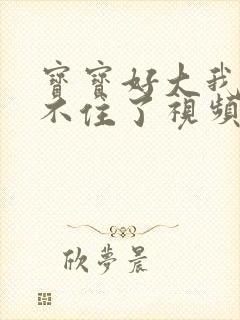 寶寶好大我
不住了視頻
欣夢晨